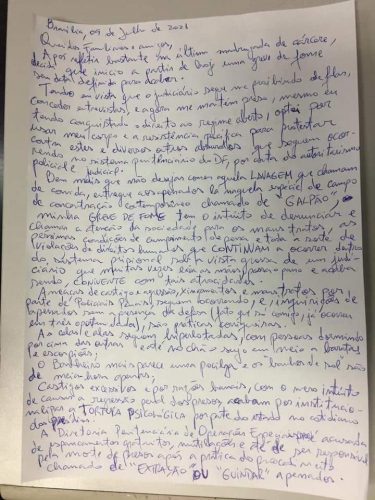 Brasília, 09 de Julho de 2021
Queridos familiares e amigos,
Após refletir bastante em última madrugada de cárcere,
decidi que inicio a partir de hoje uma greve de fome
sem data definida para acabar.
Tendo em vista que o judiciário segue me proibindo de
conceder entrevistas, e agora me mantém preso, mesmo eu
tendo conquistado o direito ao regime aberto, optei por
usar meu corpo e a resistência pacífica para protestar
contra estes e diversos outros absurdos que seguem ocor-
rendo no sistema penitenciário do DF, por conta do autoritarismo
policial e judicial.
Bem mais que não desejar comer aquela LAVAGEM que chamam
de comida, entregue aos apenados
de concentração contemporâneo chamado de "GALPÃO", a
minha GREVE DE FOME tem o intuito de denunciar e
chamar a atenção da sociedade para os maus tratos, as
péssimas condições de cumprimento de pena e toda a sorte de
violações de direitos humanos que CONTINUAM a ocorrer dentro
do sistema prisional sob a vista grossa de um judi-
ciário que muitas vezes
sendo CONIVENTE com tais atrocidades.
Ameaças de castigos e agressão, xingamentos e maus tratos por
parte de Policiais Penais, seguem ocorrendo, e, inquirições de
apenados sem a presença da defesa (fato que só comigo, já ocorreu
em três oportunidades), são práticas corriqueiras.
As celas e alas seguem superlotadas, com pessoas dormindo
por cima das outras e até no chão sujo em meio a baratas
e escorpiões.
O banheiro mais parece uma pocilga e os banhos de sol são
de mentirinha apenas.
Castigos excessivos e por razões banais, com o mero intuito
de causar a regressão penal dos presos acabam por institucio-
nalizar a TORTURA PSICOLÓGICA por parte do estado no cotidiano
dos presídios.
A Diretoria Penitenciária de Operações Especiais é acusada
de espancamentos gratuitos, mutilações e até de ser responsável
pela morte de presos após a prática do procedimento
chamado de "EXTRAÇÃO" OU "GUINDAR" apenados.